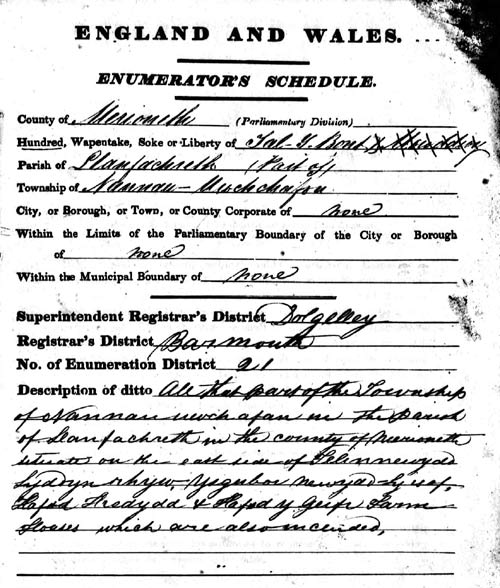 ENGLAND AND WALES.
ENUMERATOR'S SCHEDULE.
County of Merioneth (Parliamentary Division)
Hundred, Wapentake, Soke or Liberty of Tal-Y Bont &
Parish of Llanfachreth (Part of)
Township of Nannau-Uwchchafon
City, or Borough, or Town, or County Corporate of none
Within the Limits of the Parliamentary Boundary of the City or Borough
of none
Within the Municipal Boundary of none
Superintendent Registrar's District Dolgelley
Registrar's District Barmouth
No. of Enumeration District 21
Description of ditto All that part of the Township
of Nannau uwch afon in the Parish
of Llanfachreth in the county of Merioneth
situate on the east side of
Hafod & Hafod y Farm
Houses which are also included,